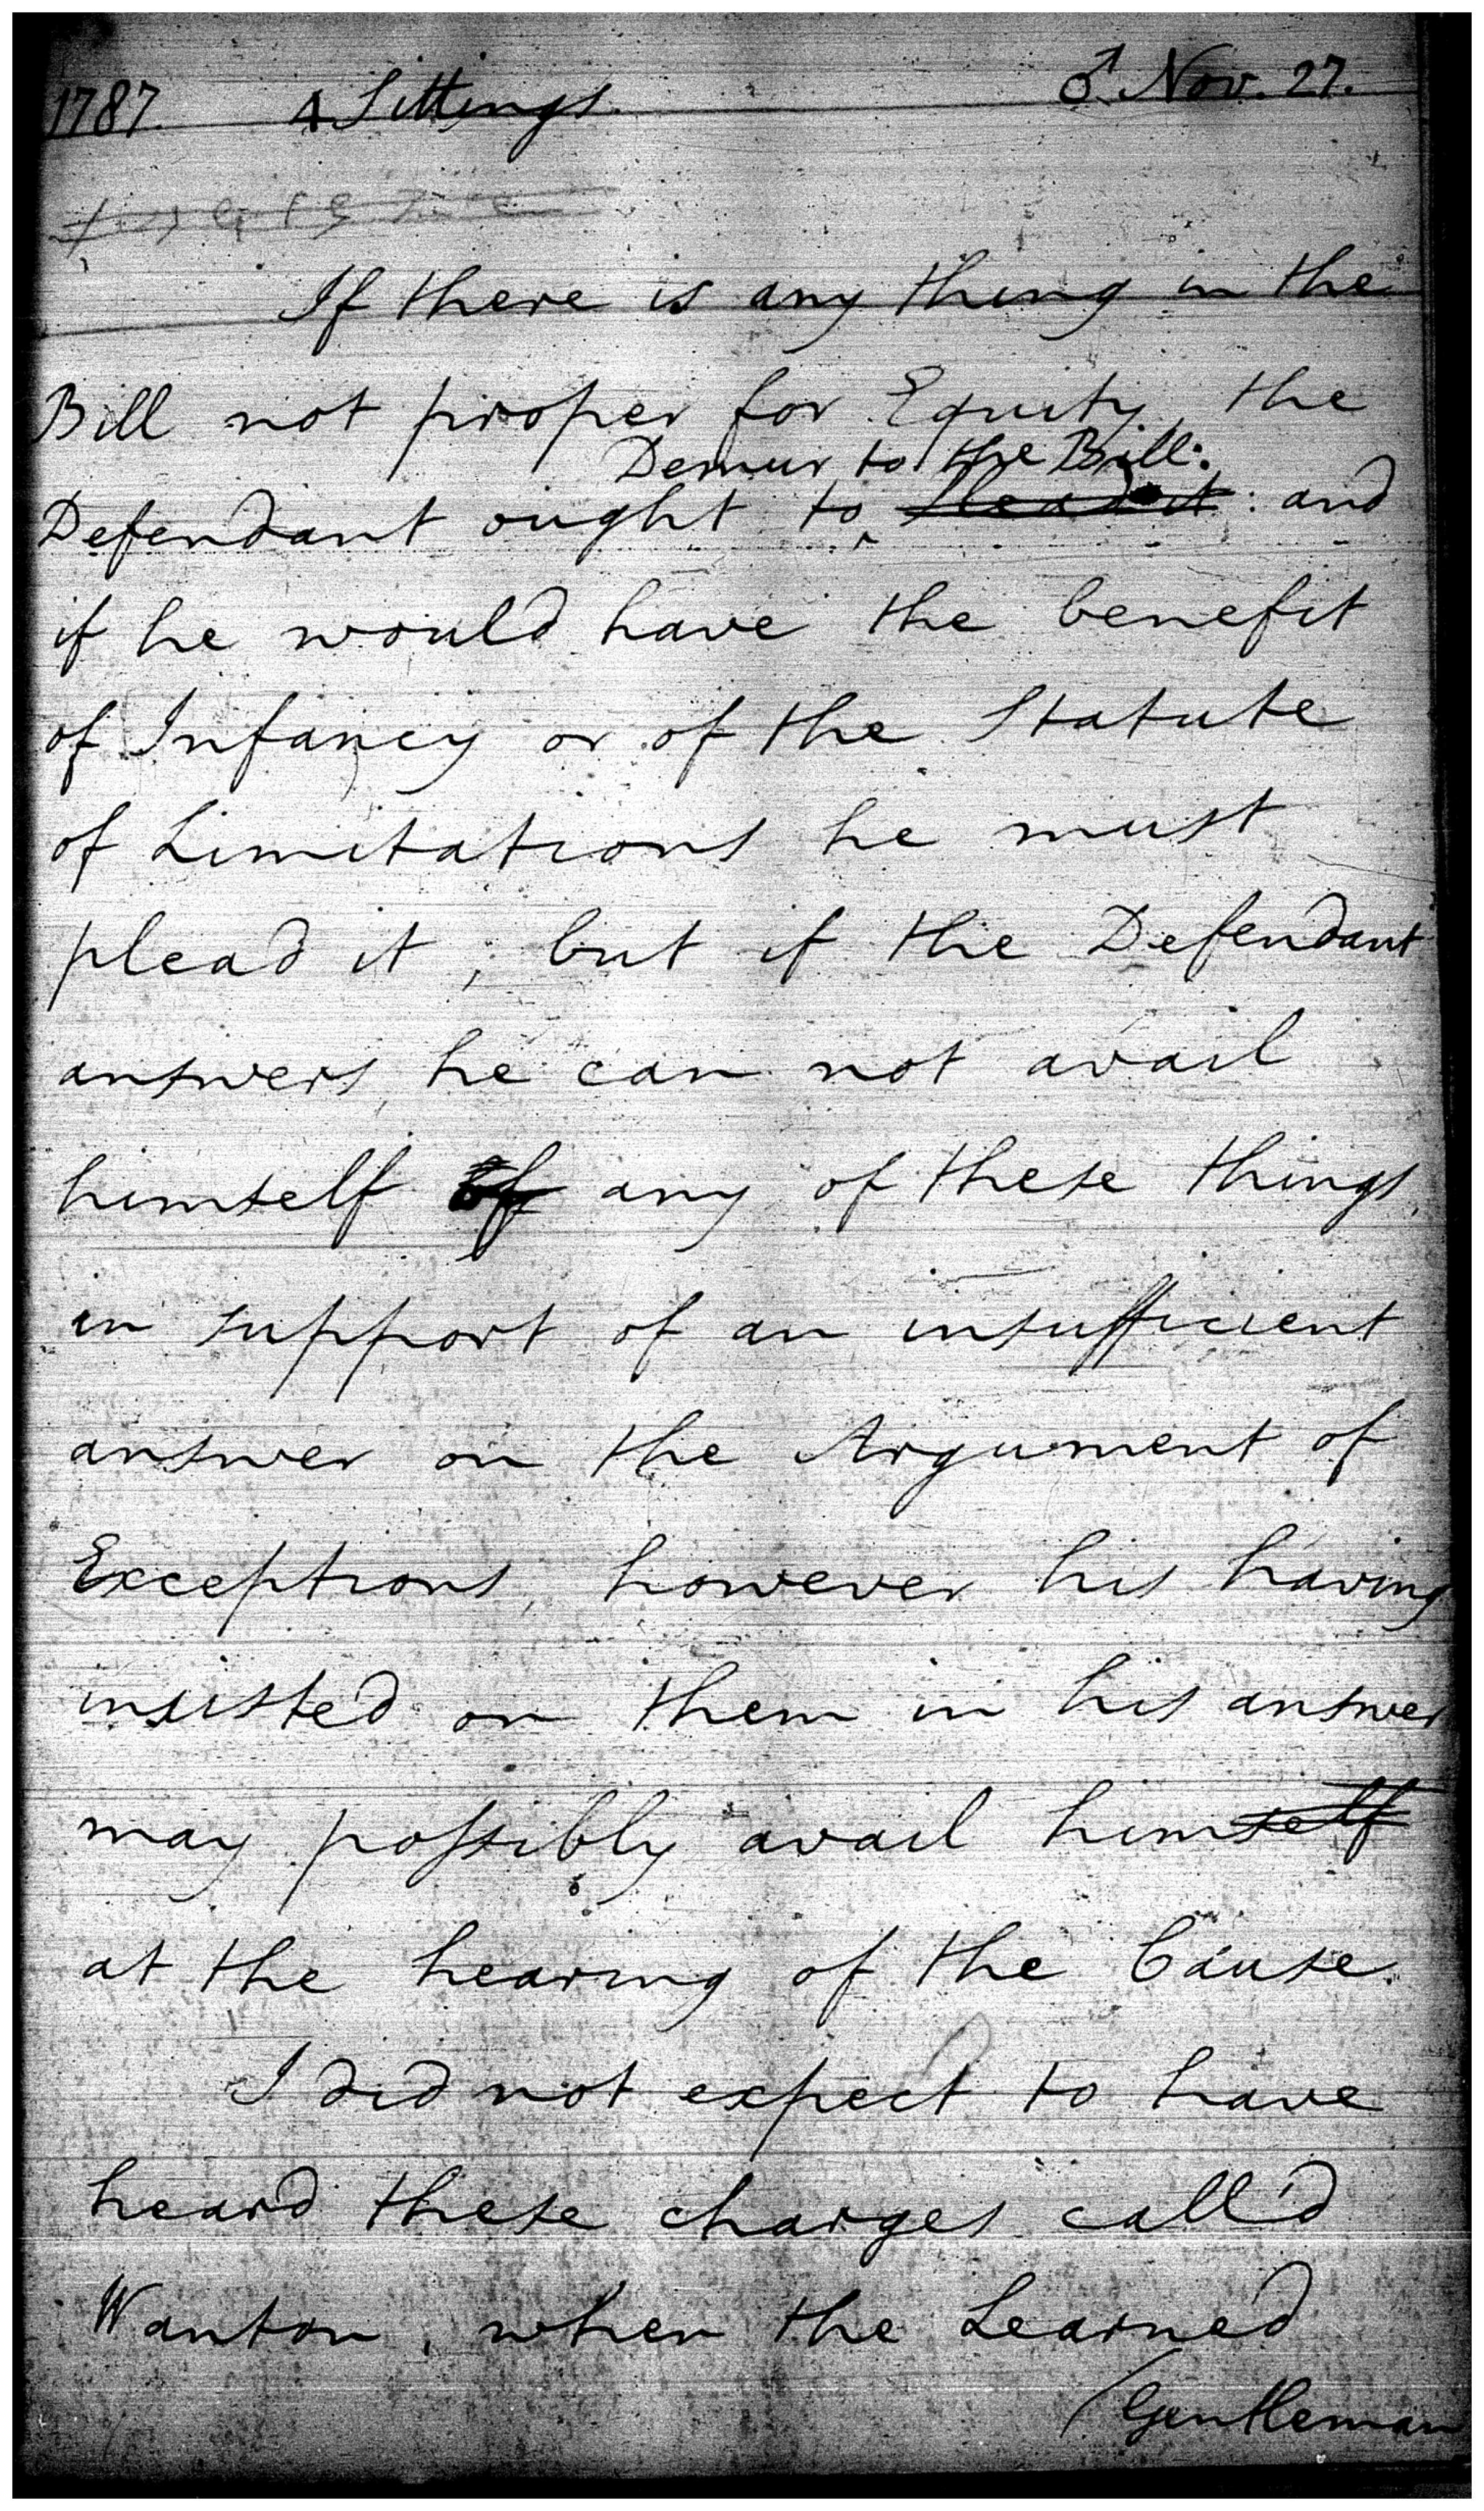 1787. 4 Sittings. ♂ Nov. 27.
If there is any thing in the
Bill not proper for Equity, the
Demur to the Bill:
Defendant ought to plead it : and
if he would have the benefit
of Infancy or of the Statute
of Limitations he must
plead it ; but if the Defendant
answers, he can not avail
himself of any of these things,
in support of an insufficient
answer on the Argument of
Exceptions, however his having
insisted on them in his answer
may possibly avail himself
at the hearing of the Cause.
I did not expect to have
heard these charges call'd
Wanton, when the Learned
Gentleman